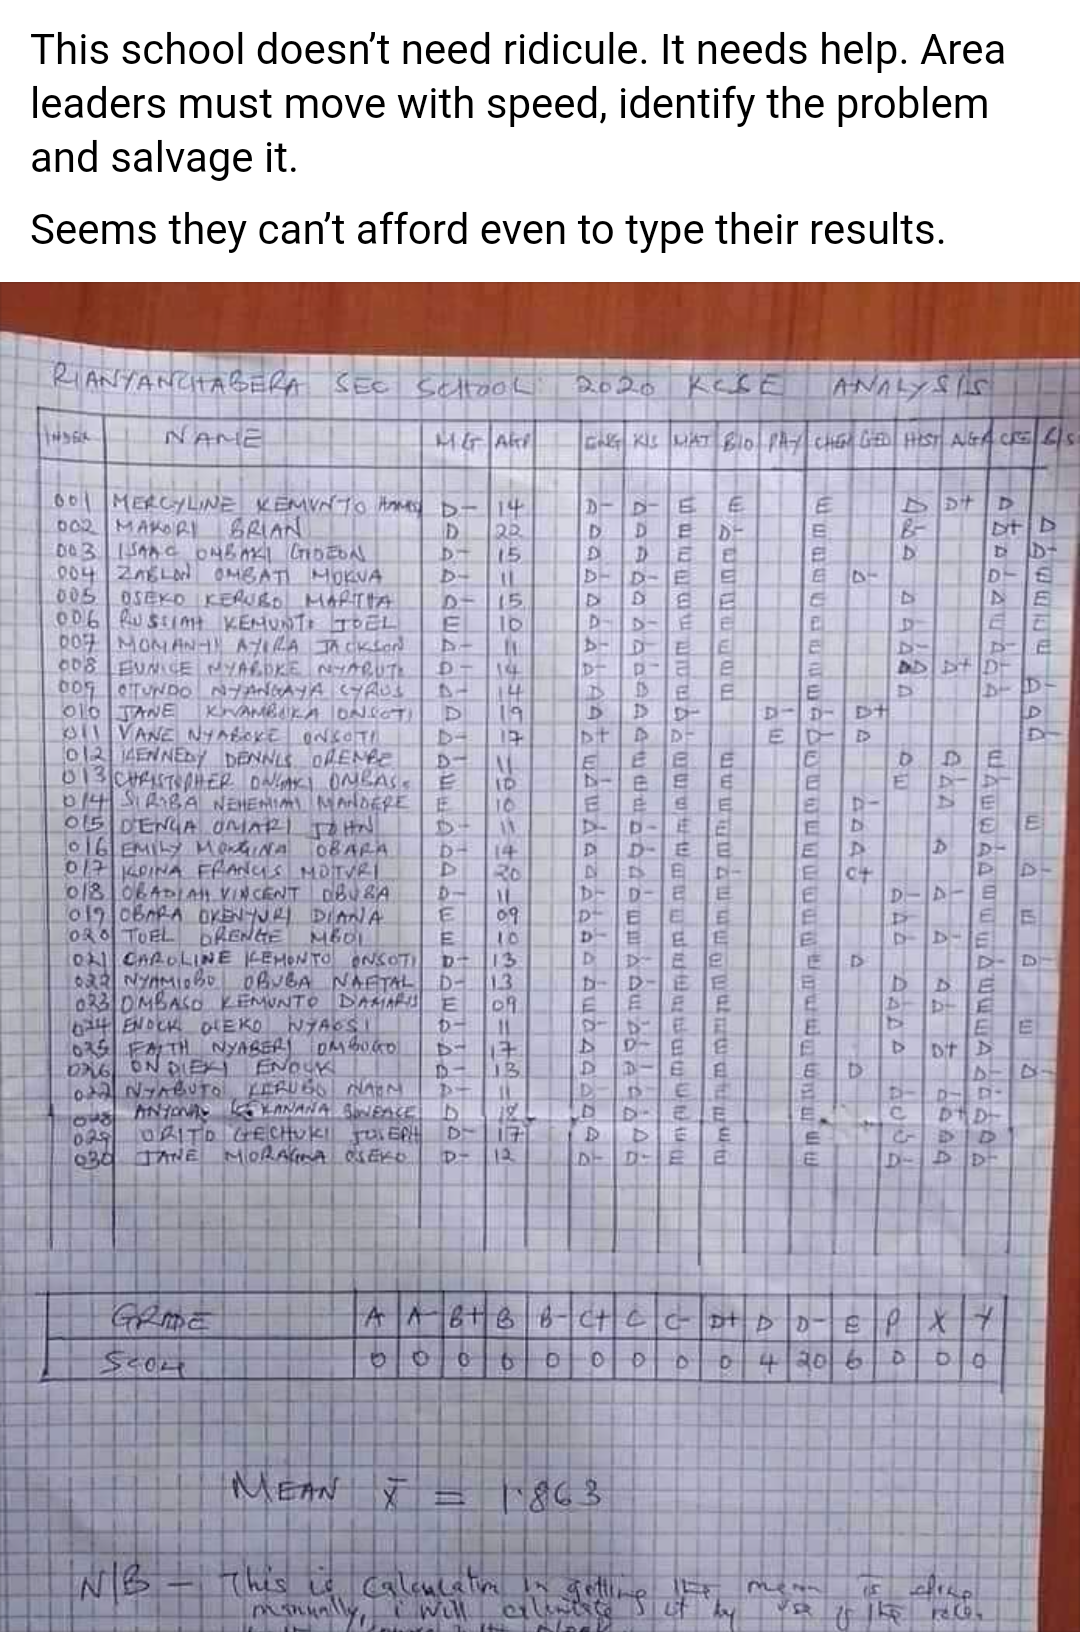 This school doesn’t need ridicule. It needs help. Area
leaders must move with speed, identify the problem
and salvage it.
Seems they can’t afford even to type their results.
RIANYANCHABERA SEC SCHOOL 2020 KCSE ANALYSIS
INDEX NAME MG AGP ENG KIS MAT BIO PHY CHEM GEO HIST AGR CRE B/S
001 MERCYLINE KEMUNTO D- 14 D- D- E E E D D+ D
002 MAKORI BRIAN D 22 D D E D- E B- D+ D
003 ISAAC OMBAKI GIDEON D- 15 D D E E E D D D-
004 ZABLON OMBATI MOKUA D- 11 D- D- E E E D- D- E
005 OSEKO KERUBO MARTHA D- 15 D D E E E D D E
006 KEMUNTO JOEL E 10 D- D- E E E D- E E
007 AYIRA JACKSON D- 11 D- D- E E E D- D- E
008 EUNICE NYABOKE D- 14 D- D- E E E D D+ D-
009 OTUNDO NYANGAYA CYRUS D- 14 D D E E E D D- D-
010 JANE KWAMBOKA ONSOTI D 19 D D D- D- D- D+ D
011 VANE NYABOKE ONSOTI D- 17 D+ D D- E D- D D-
012 KENNEDY DENNIS ORENGE D- 11 E E E E E D D E
013 CHRISTOPHER E 10 D- E E E E E D- D-
014 SIRIBA NEHEMIAH MANDERE E 10 E E E E E D- D E
015 OMARI JOHN D- 11 D- D- E E E D E E
016 EMILY MONGINA OBARA D- 14 D D- E E E D D D-
017 FRANCIS MOTURI D 20 D D E D- E C+ D D-
018 OBADIAH VINCENT OBUBA D- 11 D- D- E E E D- D- E
019 OBARA DIANA E 09 D- E E E E D- E E
020 JOEL ORENGE MBOI E 10 D- E E E E D- D- E
021 CAROLINE KEMONTO ONSOTI D- 13 D D- E E E D D- D-
022 NYAMIOBO OBUBA NAFTAL D- 13 D- D- E E E D D E
023 OMBASO KEMUNTO DAMARIS E 09 E E E E E D- D- E
024 ENOCK D- 11 D- D- E E E D E E
025 FAITH NYABERI OMBOGO D- 17 D D- E E E D D+ D
026 ONDIEKI ENOCK D- 13 D D- E E E D D- D-
027 NYABUTO KERUBO NAOM D- 11 D- D- E E E D- D- D-
028 D 18 D D- E E E C D+ D-
029 ORITO GECHUKI JOSEPH D- 17 D D E E E C- D D
030 JANE MORAGWA OSEKO D- 12 D- D- E E E D- D D-
GRADE A A- B+ B B- C+ C C- D+ D D- E P X Y
SCORE 0 0 0 0 0 0 0 0 0 4 20 6 0 0 0
MEAN x̄ = 1.863
N/B - This is calculation in getting the mean is
manually, i will it by use of the